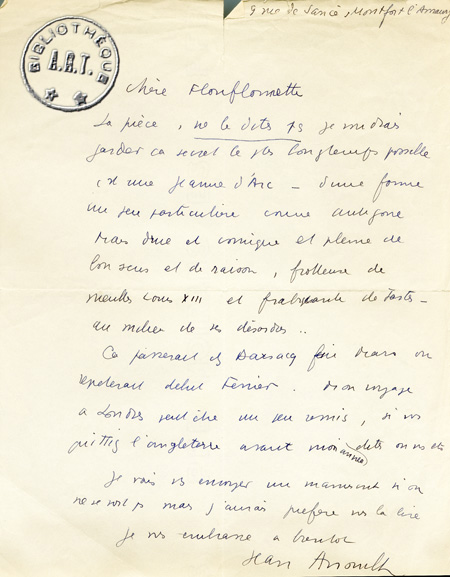 BIBLIOTHÈQUE
A.R.T.
Montfort l'Amaury
Chère Flonflonnette
La pièce, ne le dites ps je voudrais
garder ca secret le ps longtemps possible
c'est une Jeanne d'Arc – d'une forme
un peu particulière comme antigone
mais dure et comique et pleine de
bon sens et de raison, frotteuse de
meubles Louis XIII et de
au milieu de ses désordres ..
Ca passerait chez Barsacq fin mars on
répéterait début Février. Mon voyage
a Londres peut être un peu remis, si vs
quittez l'angleterre avant mon arrivée dites où vs êtes
Je vais vs envoyer un manuscrit si on
ne se voit ps mais j'aurais préféré vs la lire
Je vs embrasse a bientot
Jean Anouilh